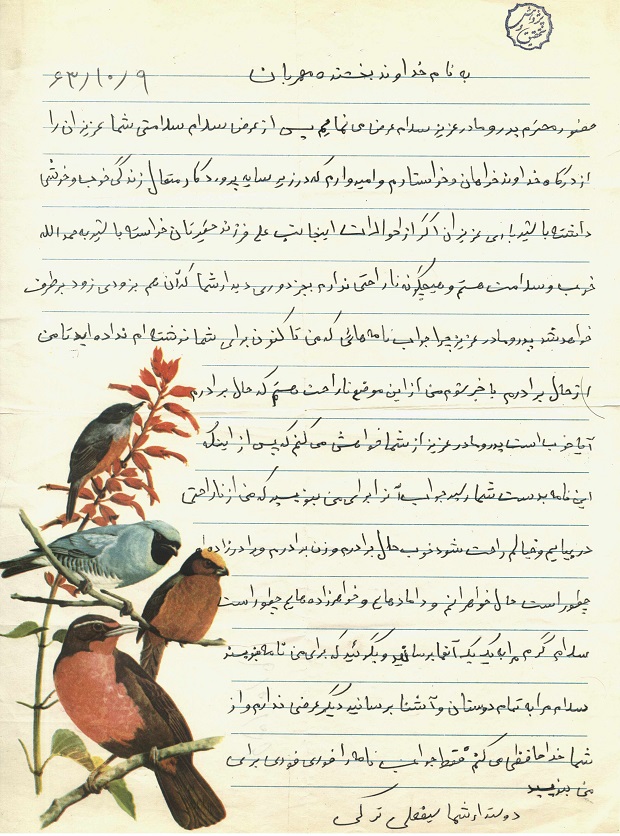 به نام خداوند بخشنده مهربان
۶۳/۱۰/۹
حضور محترم پدر و مادر عزیز سلام عرض می نمایم پس از عرض سلام سلامتی شما عزیزان را
از درگاه خداوند خواهان و خواستارم و امیدوارم که در زیر سایه پروردگار متعال زندگی خوب و خوشی
داشته باشید باری عزیزان اگر از احوالات اینجانب علی فرزند حقیرتان خواسته باشید بحمد الله
خوب و سلامت هستم و هیچگونه ناراحتی ندارم بجز دوری دیدار شما که آن هم بزودی زود برطرف
خواهد شد پدر و مادر عزیز چرا جواب نامه هائی که من تا کنون برای شما نوشته ام نداده اید تا من
از حال برادرم با خبر شوم من از این موضوع ناراحت هستم که حال برادرم
آیا خوب است پدر و مادر عزیز از شما خواهش می کنم که پس از اینکه
این نامه بدست شما رسید جواب آنرا برای من بنویسید که من از ناراحتی
در بیایم و خیالم راحت شود خوب حال برادرم و زن برادرم و برادرزاده ام
چطور است حال خواهرانم و دامادهایم و خواهرزاده هایم چطور است
سلام گرم مرا به یک یک آنها برسانید و بگوئید که برای من نامه بنویسند
سلام مرا به تمام دوستان و آشنا برسانید دیگر عرضی ندارم و از
شما خداحافظی می کنم فقط جواب نامه را فوری فوری برای
من بنویسید
دوستدار شما سیفعلی ترکی